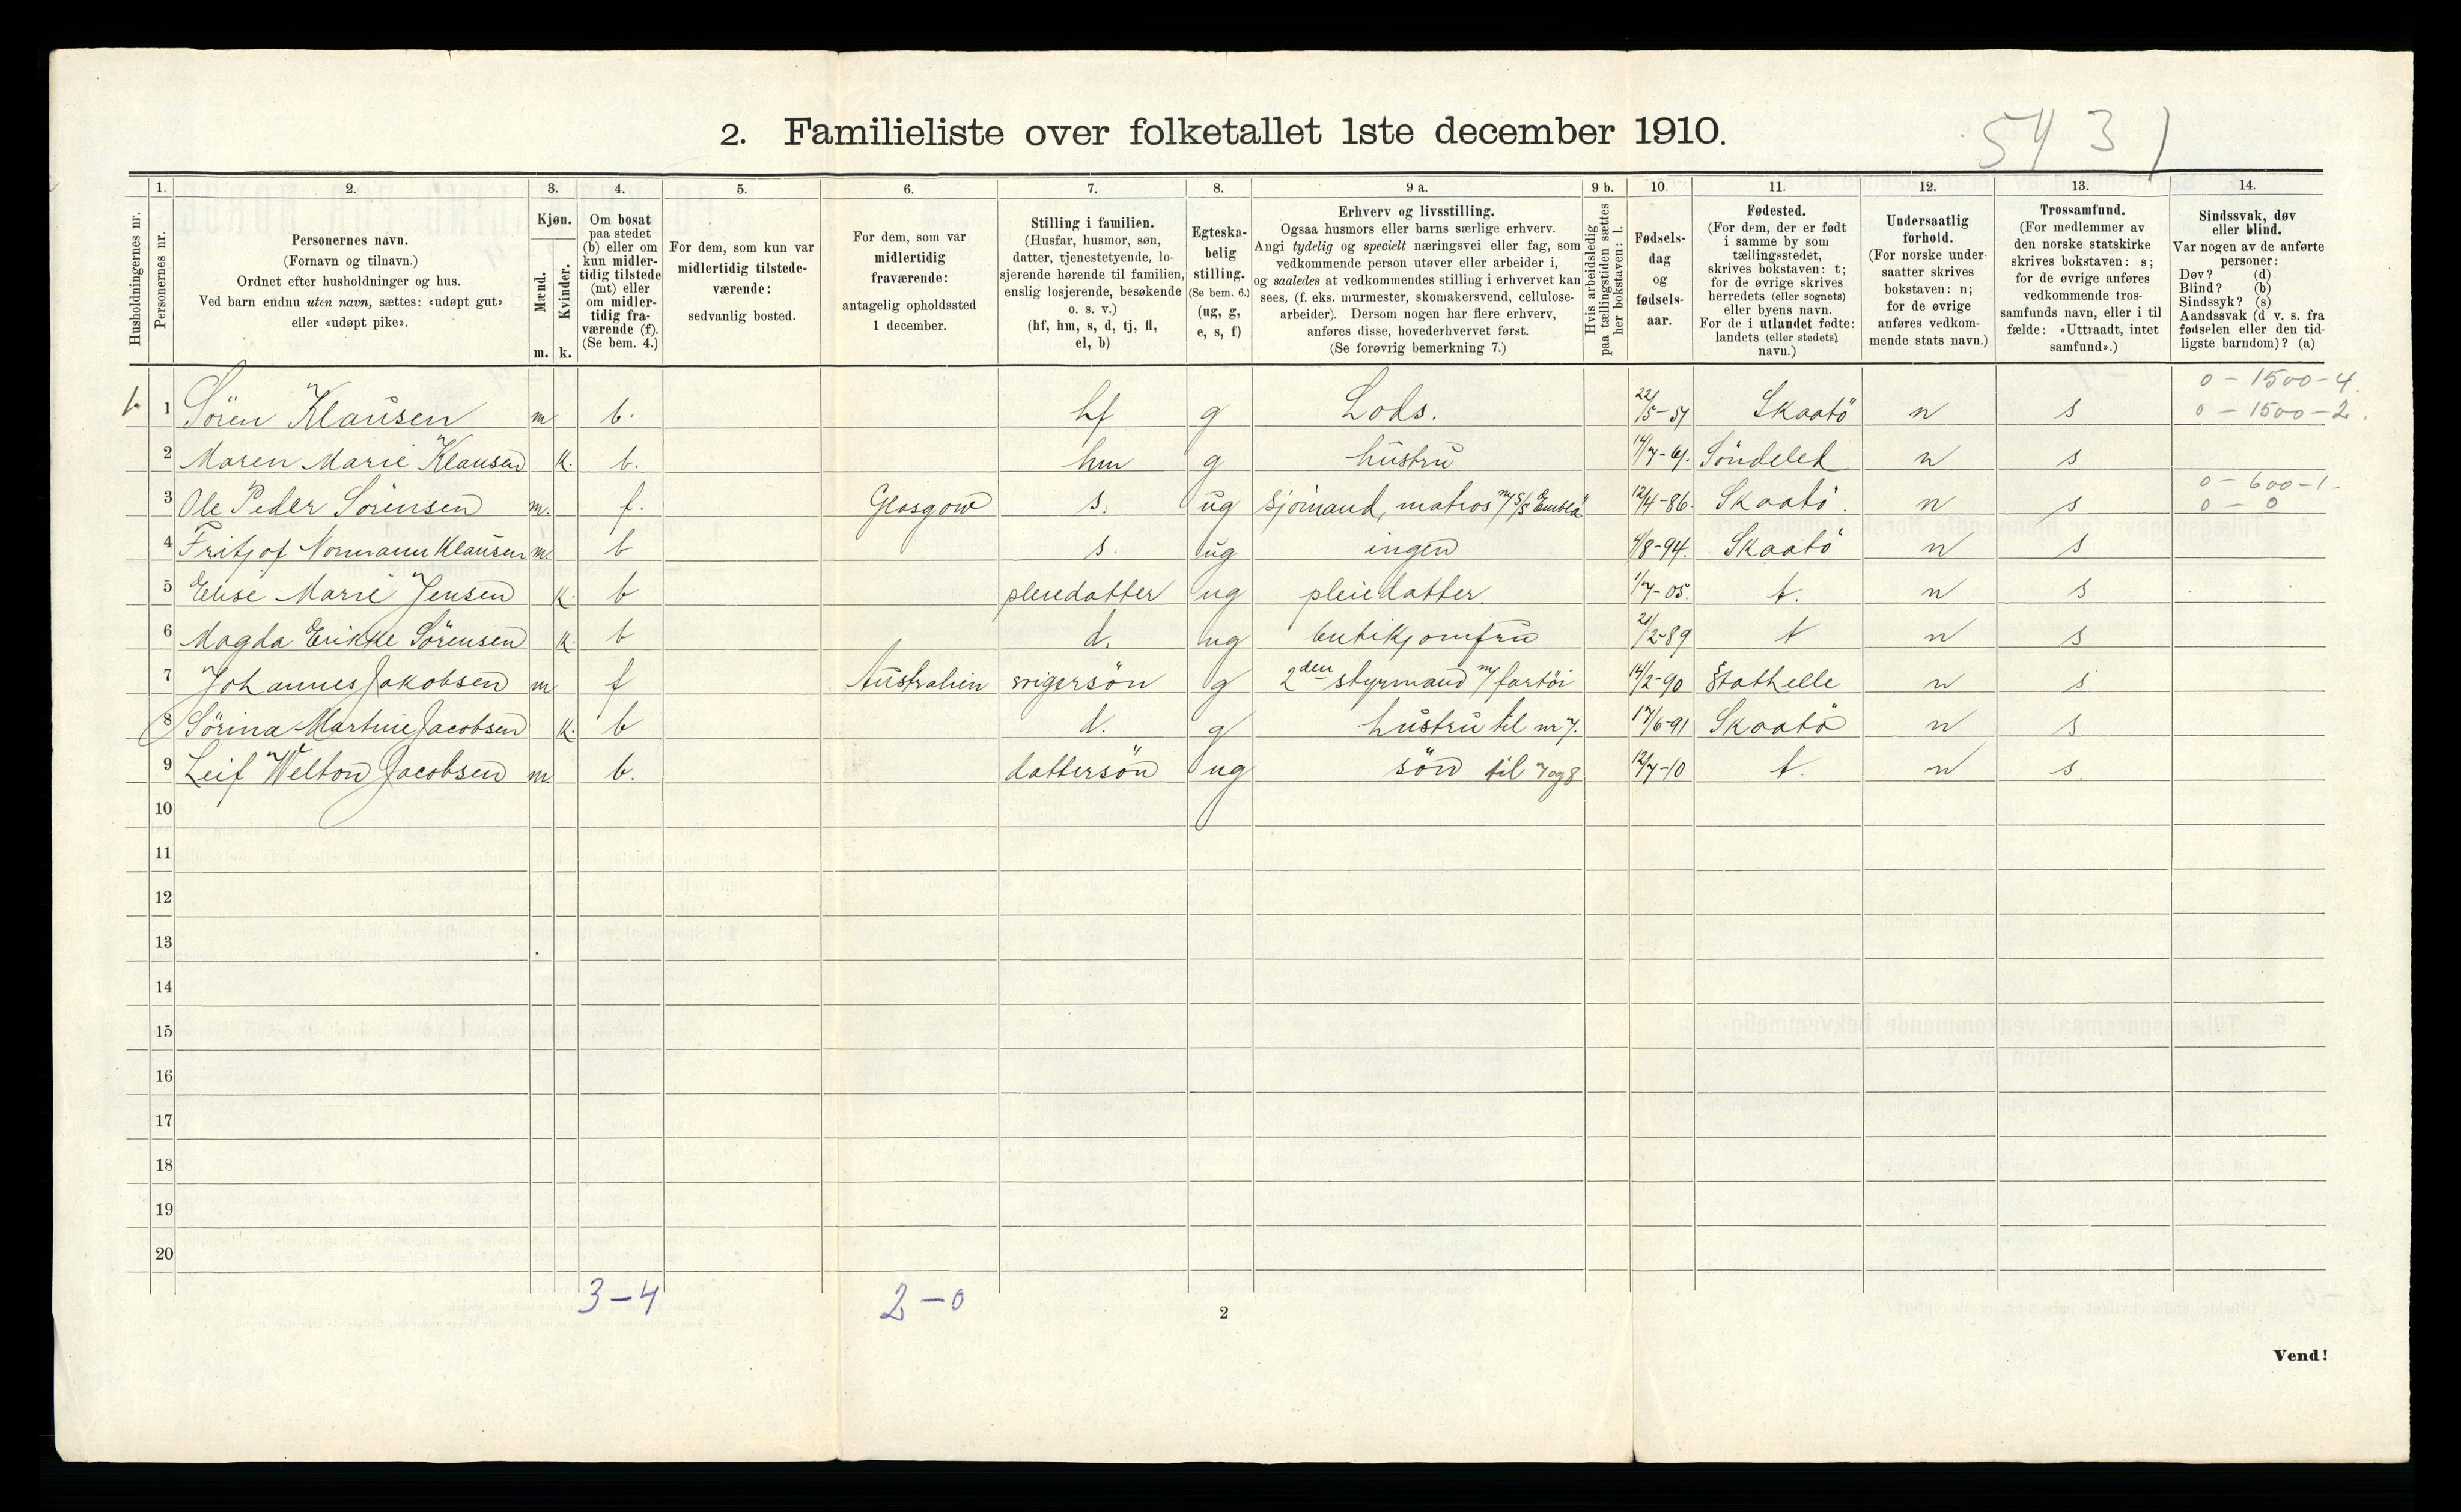 2. Familieliste over folketallet 1ste december 1910.
54 3 1
Husholdningernes nr.
1. Personernes nr.
2. Personernes navn. (Fornavn og tilnavn.) Ordnet efter husholdninger og hus. Ved barn endnu uten navn, sættes: «udøpt gut» eller «udøpt pike».
3. Kjøn. Mænd. m. Kvinder. k.
4. Om bosat paa stedet (b) eller om kun midlertidig tilstede (mt) eller om midlertidig fraværende (f). (Se bem. 4.)
5. For dem, som kun var midlertidig tilstedeværende: sedvanlig bosted.
6. For dem, som var midlertidig fraværende: antagelig opholdssted 1 december.
7. Stilling i familien. (Husfar, husmor, søn, datter, tjenestetyende, losjerende hørende til familien, enslig losjerende, besøkende o. s. v.) (hf, hm, s, d, tj, fl, el, b)
8. Egteskabelig stilling. (Se bem. 6.) (ug, g, e, s, f)
9 a. Erhverv og livsstilling. Ogsaa husmors eller barns særlige erhverv. Angi tydelig og specielt næringsvei eller fag, som vedkommende person utøver eller arbeider i, og saaledes at vedkommendes stilling i erhvervet kan sees, (f. eks. murmester, skomakersvend, cellulosearbeider). Dersom nogen har flere erhverv, anføres disse, hovederhvervet først. (Se forøvrig bemerkning 7.)
9 b. Hvis arbeidsledig paa tællingstiden sættes her bokstaven: l.
10. Fødselsdag og fødselsaar.
11. Fødested. (For dem, der er født i samme by som tællingsstedet, skrives bokstaven: t; for de øvrige skrives herredets (eller sognets) eller byens navn. For de i utlandet fødte: landets (eller stedets) navn.)
12. Undersaatlig forhold. (For norske undersaatter skrives bokstaven: n; for de øvrige anføres vedkommende stats navn.)
13. Trossamfund. (For medlemmer av den norske statskirke skrives bokstaven: s; for de øvrige anføres vedkommende trossamfunds navn, eller i tilfælde: «Uttraadt, intet samfund».)
14. Sindssvak, døv eller blind. Var nogen av de anførte personer: Døv? (d) Blind? (b) Sindssyk? (s) Aandssvak (d v. s. fra fødselen eller den tidligste barndom)? (a)
0 - 1500 - 4.
1. 1 Sören Klausen m b. hf g Lods. 22/5-57 Skaatö n s 0 - 1500 - 2.
2 Maren Marie Klausen k. b. hm g hustru 14/7-61. Söndeled n s
0 - 600 - 1.
3 Ole Peder Sörensen m. f. Glasgow s. ug sjömand, matros m/ S/S "Embla" 12/4-86. Skaatö. n s 0 - 0
4 Fritjof Normann Klausen m. b s. ug ingen 4/8-94. Skaatö n s
5 Elise Marie Jensen k. b pleiedatter ug pleiedatter. 1/7-05. t. n s
6 Magda Erikke Sörensen k. b d. ug butikjomfru 21/2-89 t n s
7 Johannes Jakobsen m f Australien svigersön g 2den styrmand m/ fartöi 14/2-90 Stathelle n s
8 Sörina Martine Jacobsen k. b d. g hustru til nr 7. 17/6-91 Skaatö n s
9 Leif Welton Jacobsen m. b. dattersön ug sön til 7 og 8 12/7-10 t. n s.
10
11
12
13
14
15
16
17
18
19
20
3-4 2-0
2
Vend!